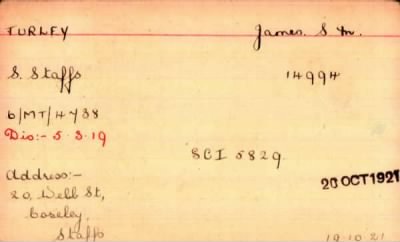 TURLEY James. S M.
S. Staffs 14994
6/MT/4738
Dis:- 5.3.19
SCI 5829
Address:-
20, Webb St,
Coseley,
Staffs
20 OCT 1921
19.10.21